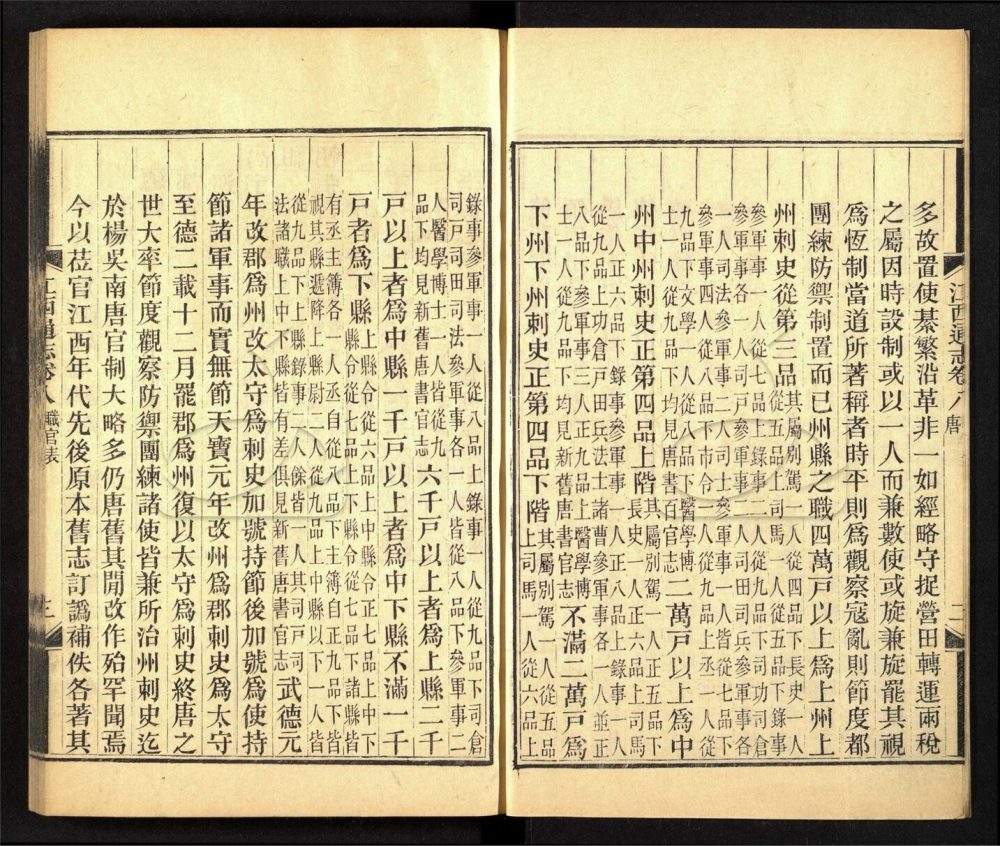 多故置使綦繁沿革非一如經略守捉營田轉運兩稅
之屬因時設制或以一人而兼數使或旋兼旋罷其視
爲恆制當道所著稱者時平則爲觀察寇亂則節度都
團練防禦制置而已州縣之職四萬戶以上爲上州上
州刺史從第三品其屬別駕一人從四品下長史一人
從五品上司馬一人從五品下錄事
參軍事一人從七品上錄事二人從九品下司功司倉
參軍事各一人司戶參軍事二人司田司兵參軍事各
一人司法參軍事二人司士參軍事一人皆從七品下
參軍事四人從八品下市令一人從九品上丞一人從
九品下文學一人從八品下醫學博
士一人從九品下均見新舊唐書百官志二萬戶以上爲中
州中州刺史正第四品上階其屬別駕一人正五品下
長史一人正六品上司馬
一人正六品下錄事參軍事一人正八品上錄事一人
從九品上功倉戶田兵法士諸曹參軍事各一人並正
八品下參軍事三人正九品下醫學博
士一人從九品下均見新舊唐書官志不滿二萬戶爲
下州下州刺史正第四品下階其屬別駕一人從五品
上司馬一人從六品上
江西通志卷八 唐
二
錄事參軍事一人從八品上錄事一人從九品下司倉
司戶司田司法參軍事各一人皆從八品下參軍事二
人醫學博士一人皆從九
品下均見新舊唐書官志六千戶以上者爲上縣二千
戶以上者爲中縣一千戶以上者爲中下縣不滿一千
戶者爲下縣上縣令從六品上中縣令正七品上中下
縣令從七品上下縣令從七品下諸縣皆
有丞主簿各一人丞自從八品下主簿自正九品下皆
視其縣遞降上縣尉二人從九品上中縣以下一人皆
從九品下上縣錄事二人餘皆一人其司戶司
法諸職上中下縣皆有差俱見新舊唐書官志武德元
年改郡爲州改太守爲刺史加號持節後加號爲使持
節諸軍事而實無節天寶元年改州爲郡刺史爲太守
至德二載十二月罷郡爲州復以太守爲刺史終唐之
世大率節度觀察防禦團練諸使皆兼所治州刺史迄
於楊吳南唐官制大略多仍唐舊其閒改作殆罕聞焉
今以莅官江西年代先後原本舊志訂譌補佚各著其
江西通志卷八 職官表
三